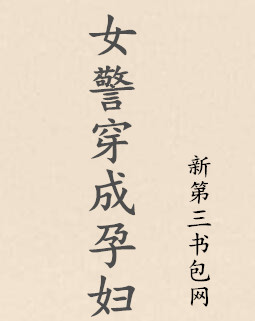 女警穿成孕妇
新第三书包网